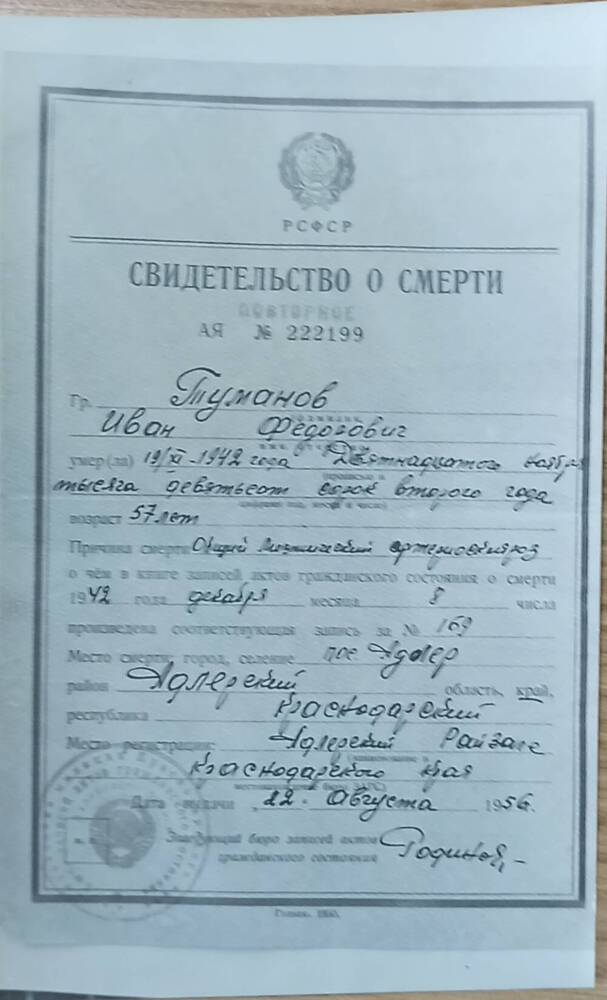 РСФСР
СВИДЕТЕЛЬСТВО О СМЕРТИ
ПОВТОРНОЕ
АЯ № 222199
Гр. Туманов
Иван Федорович
умер(ла) 19/XI-1942 года Девятнадцатого ноября
тысяча девятьсот сорок второго года
возраст 57 лет
Причина смерти Общий артериосклероз
о чём в книге записей актов гражданского состояния о смерти
1942 года декабря месяца 8 числа
произведена соответствующая запись за № 169
Место смерти: город, селение пос. Адлер
район Адлерский область, край,
республика Краснодарский
Место регистрации: Адлерский Райзагс
Краснодарского края
Дата выдачи „22" Августа 1956.
Заведующий бюро записей актов
гражданского состояния
Гознак. 1950.